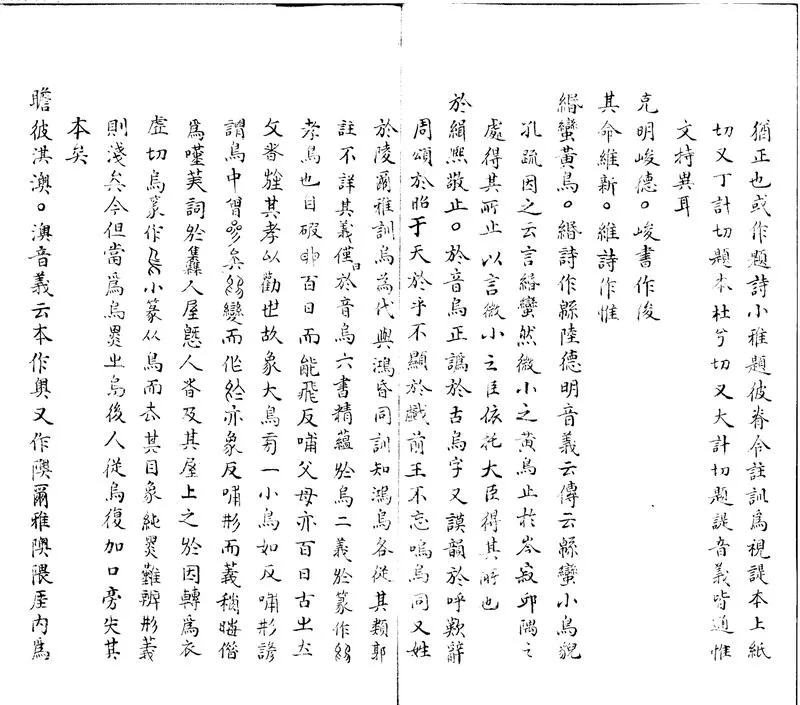 猶正也或作題詩小雅題彼脊令註訓爲視諟本上紙
切又丁計切題本杜兮切又大計切題諟音義皆通惟
文持異耳
克明峻德。峻書作俊
其命維新。維詩作惟
緡蠻黃鳥。緡詩作緜陸德明音義云傳云緜蠻小鳥貌
孔疏因之云言緡蠻然微小之黃鳥止於岑寂邱隅之
處得其所止以言微小之臣依托大臣得其所也
於緝熙敬止。於音烏正譌於古烏字又謨韻於呼歎辭
周頌於昭于天於乎不顯於戲前王不忘嗚烏同又姓
於陵爾雅訓烏爲代與鴻昏同訓知鴻烏各從其類郭
註不詳其義僅曰於音烏六書精蘊於烏二義於篆作
孝鳥也目破卵百日而能飛反哺父母亦百日古出
文者 其孝以勸世故象大鳥 一小鳥如反哺形諺
謂烏中曾參矣 變而作於亦象反哺形而義稍晦借
爲嘆美詞於 人屋 人者及其屋上之於因轉爲衣
虛切烏篆作 小篆从鳥而去其目象純黑難辨形義
則淺矣今但當爲烏黑出烏後人從烏復加口旁失其
本矣
瞻彼淇澳。澳音義云本作奧又作隩爾雅隩隈厓內爲